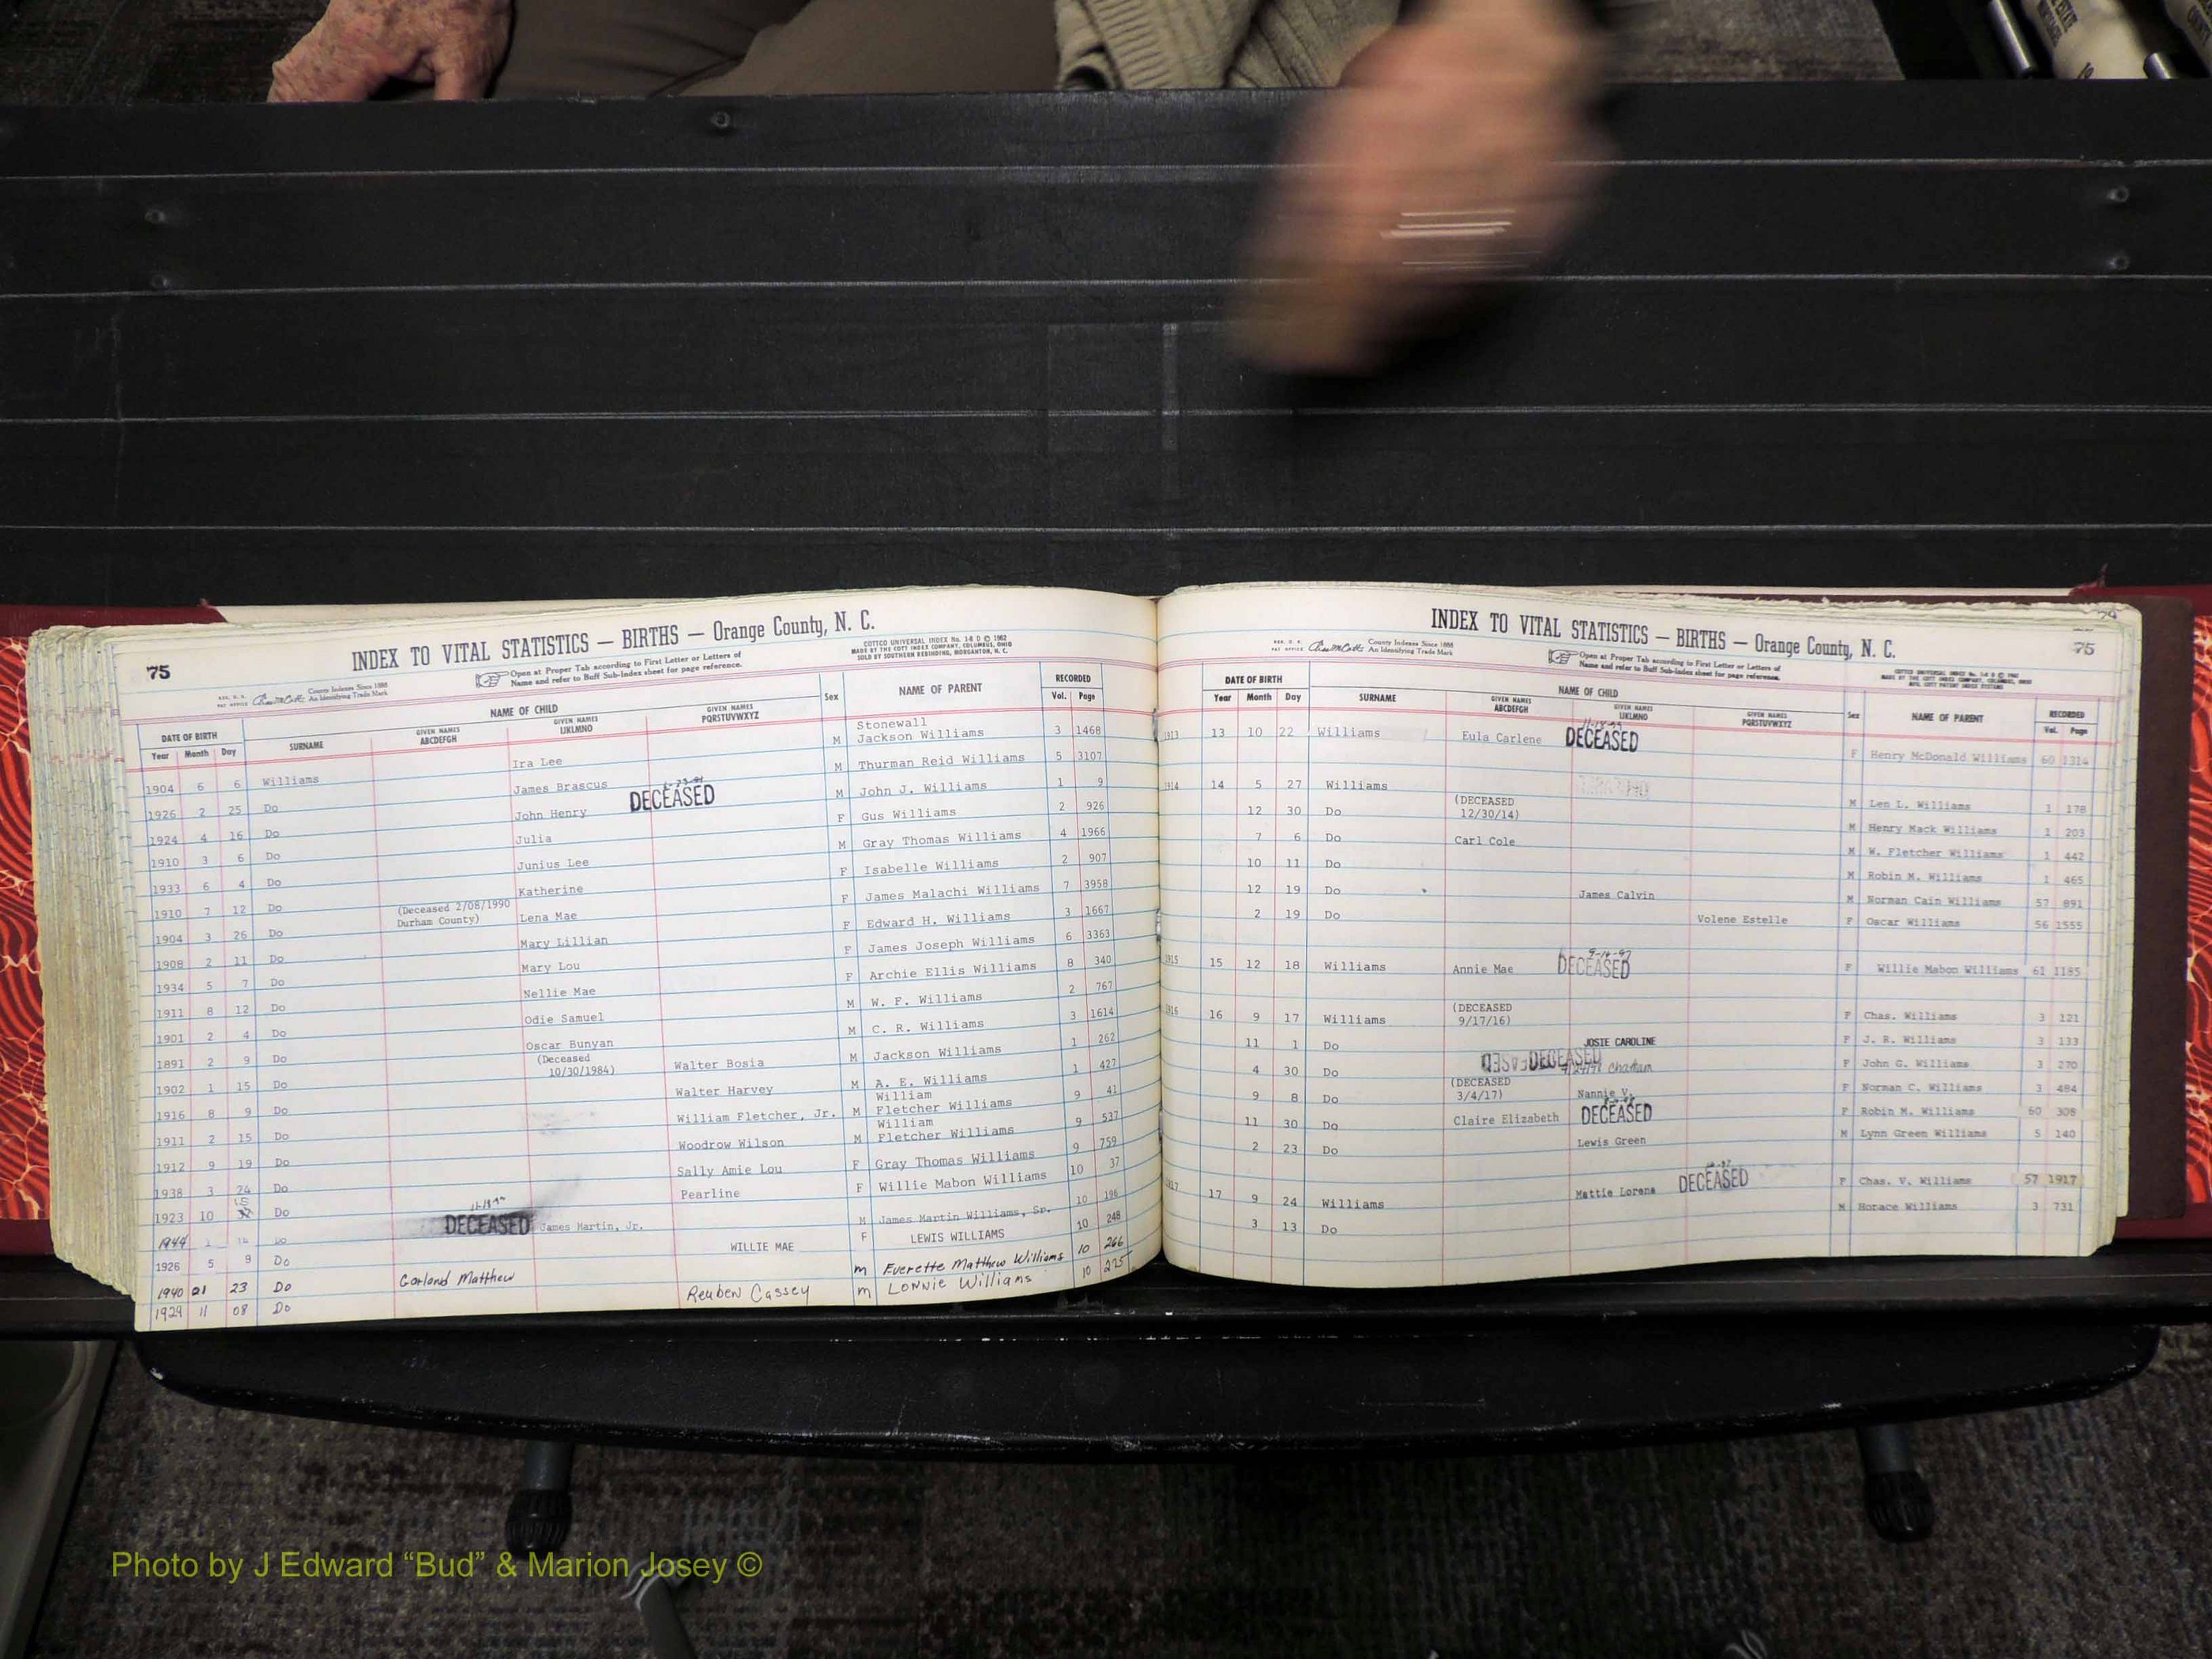 75
INDEX TO VITAL STATISTICS — BIRTHS — Orange County, N. C.
COTTCO UNIVERSAL INDEX No. 14 D © 1962
MADE BY THE COTT INDEX COMPANY, COLUMBUS, OHIO
SOLD BY SOUTHERN REBINDING, MORGANTON, N. C.
County Indexes Since 1888
An Identifying Trade Mark
Open at Proper Tab according to First Letter or Letters of
Name and refer to Buff Sub-Index sheet for page reference.
DATE OF BIRTH NAME OF CHILD Sex NAME OF PARENT RECORDED
Year Month Day SURNAME GIVEN NAMES ABCDEFGH GIVEN NAMES IJKLMNO GIVEN NAMES PQRSTUVWXYZ Vol. Page
1904 6 6 Williams Ira Lee M Stonewall Jackson Williams 3 1468
1926 2 25 Do James Brascus M Thurman Reid Williams 5 3107
1924 4 16 Do John Henry DECEASED M John J. Williams 1 9
1910 3 6 Do Julia F Gus Williams 2 926
1933 6 4 Do Junius Lee M Gray Thomas Williams 4 1966
1910 7 12 Do Katherine F Isabelle Williams 2 907
1904 3 26 Do (Deceased 2/08/1990 Durham County) Lena Mae F James Malachi Williams 7 3958
1908 2 11 Do Mary Lillian F Edward H. Williams 3 1667
1934 5 7 Do Mary Lou F James Joseph Williams 6 3363
1911 8 12 Do Nellie Mae F Archie Ellis Williams 8 340
1901 2 4 Do Odie Samuel M W. F. Williams 2 767
1891 2 9 Do Oscar Bunyan (Deceased 10/30/1984) M C. R. Williams 3 1614
1902 1 15 Do Walter Bosia M Jackson Williams 1 262
1916 8 9 Do Walter Harvey M A. E. Williams 1 427
1911 2 15 Do William Fletcher, Jr. M William Fletcher Williams 9 41
1912 9 19 Do Woodrow Wilson M William Fletcher Williams 9 537
1938 3 24 Do Sally Amie Lou F Gray Thomas Williams 9 759
1923 10 Do Pearline F Willie Mabon Williams 10 37
1944 DECEASED James Martin, Jr. M James Martin Williams, Sr. 10 196
1926 5 9 Do WILLIE MAE F LEWIS WILLIAMS 10 248
1940 01 23 Do Garland Matthew m Everette Matthew Williams 10 266
1929 11 08 Do Reuben Cassey m Lonnie Williams 10 275
75
INDEX TO VITAL STATISTICS — BIRTHS — Orange County, N. C.
County Indexes Since 1888
An Identifying Trade Mark
Open at Proper Tab according to First Letter or Letters of
Name and refer to Buff Sub-Index sheet for page reference.
DATE OF BIRTH NAME OF CHILD Sex NAME OF PARENT RECORDED
Year Month Day SURNAME GIVEN NAMES ABCDEFGH GIVEN NAMES IJKLMNO GIVEN NAMES PQRSTUVWXYZ Vol. Page
1913 13 10 22 Williams Eula Carlene DECEASED F Henry McDonald Williams 60 1314
1914 14 5 27 Williams M Len L. Williams 1 178
12 30 Do (DECEASED 12/30/14) M Henry Mack Williams 1 203
7 6 Do Carl Cole M W. Fletcher Williams 1 442
10 11 Do M Robin M. Williams 1 465
12 19 Do James Calvin M Norman Cain Williams 57 891
2 19 Do Volene Estelle F Oscar Williams 56 1555
1915 15 12 18 Williams Annie Mae DECEASED F Willie Mabon Williams 61 1185
1916 16 9 17 Williams (DECEASED 9/17/16) F Chas. Williams 3 121
11 1 Do JOSIE CAROLINE F J. R. Williams 3 133
4 30 Do DECEASED Chatham F John G. Williams 3 270
9 8 Do (DECEASED 3/4/17) Nannie V. F Norman C. Williams 3 484
11 30 Do Claire Elizabeth DECEASED F Robin M. Williams 60 308
2 23 Do Lewis Green M Lynn Green Williams 5 140
1917 17 9 24 Williams Mattie Lorena DECEASED F Chas. V. Williams 57 1917
3 13 Do M Horace Williams 3 731
Photo by J Edward “Bud” & Marion Josey ©